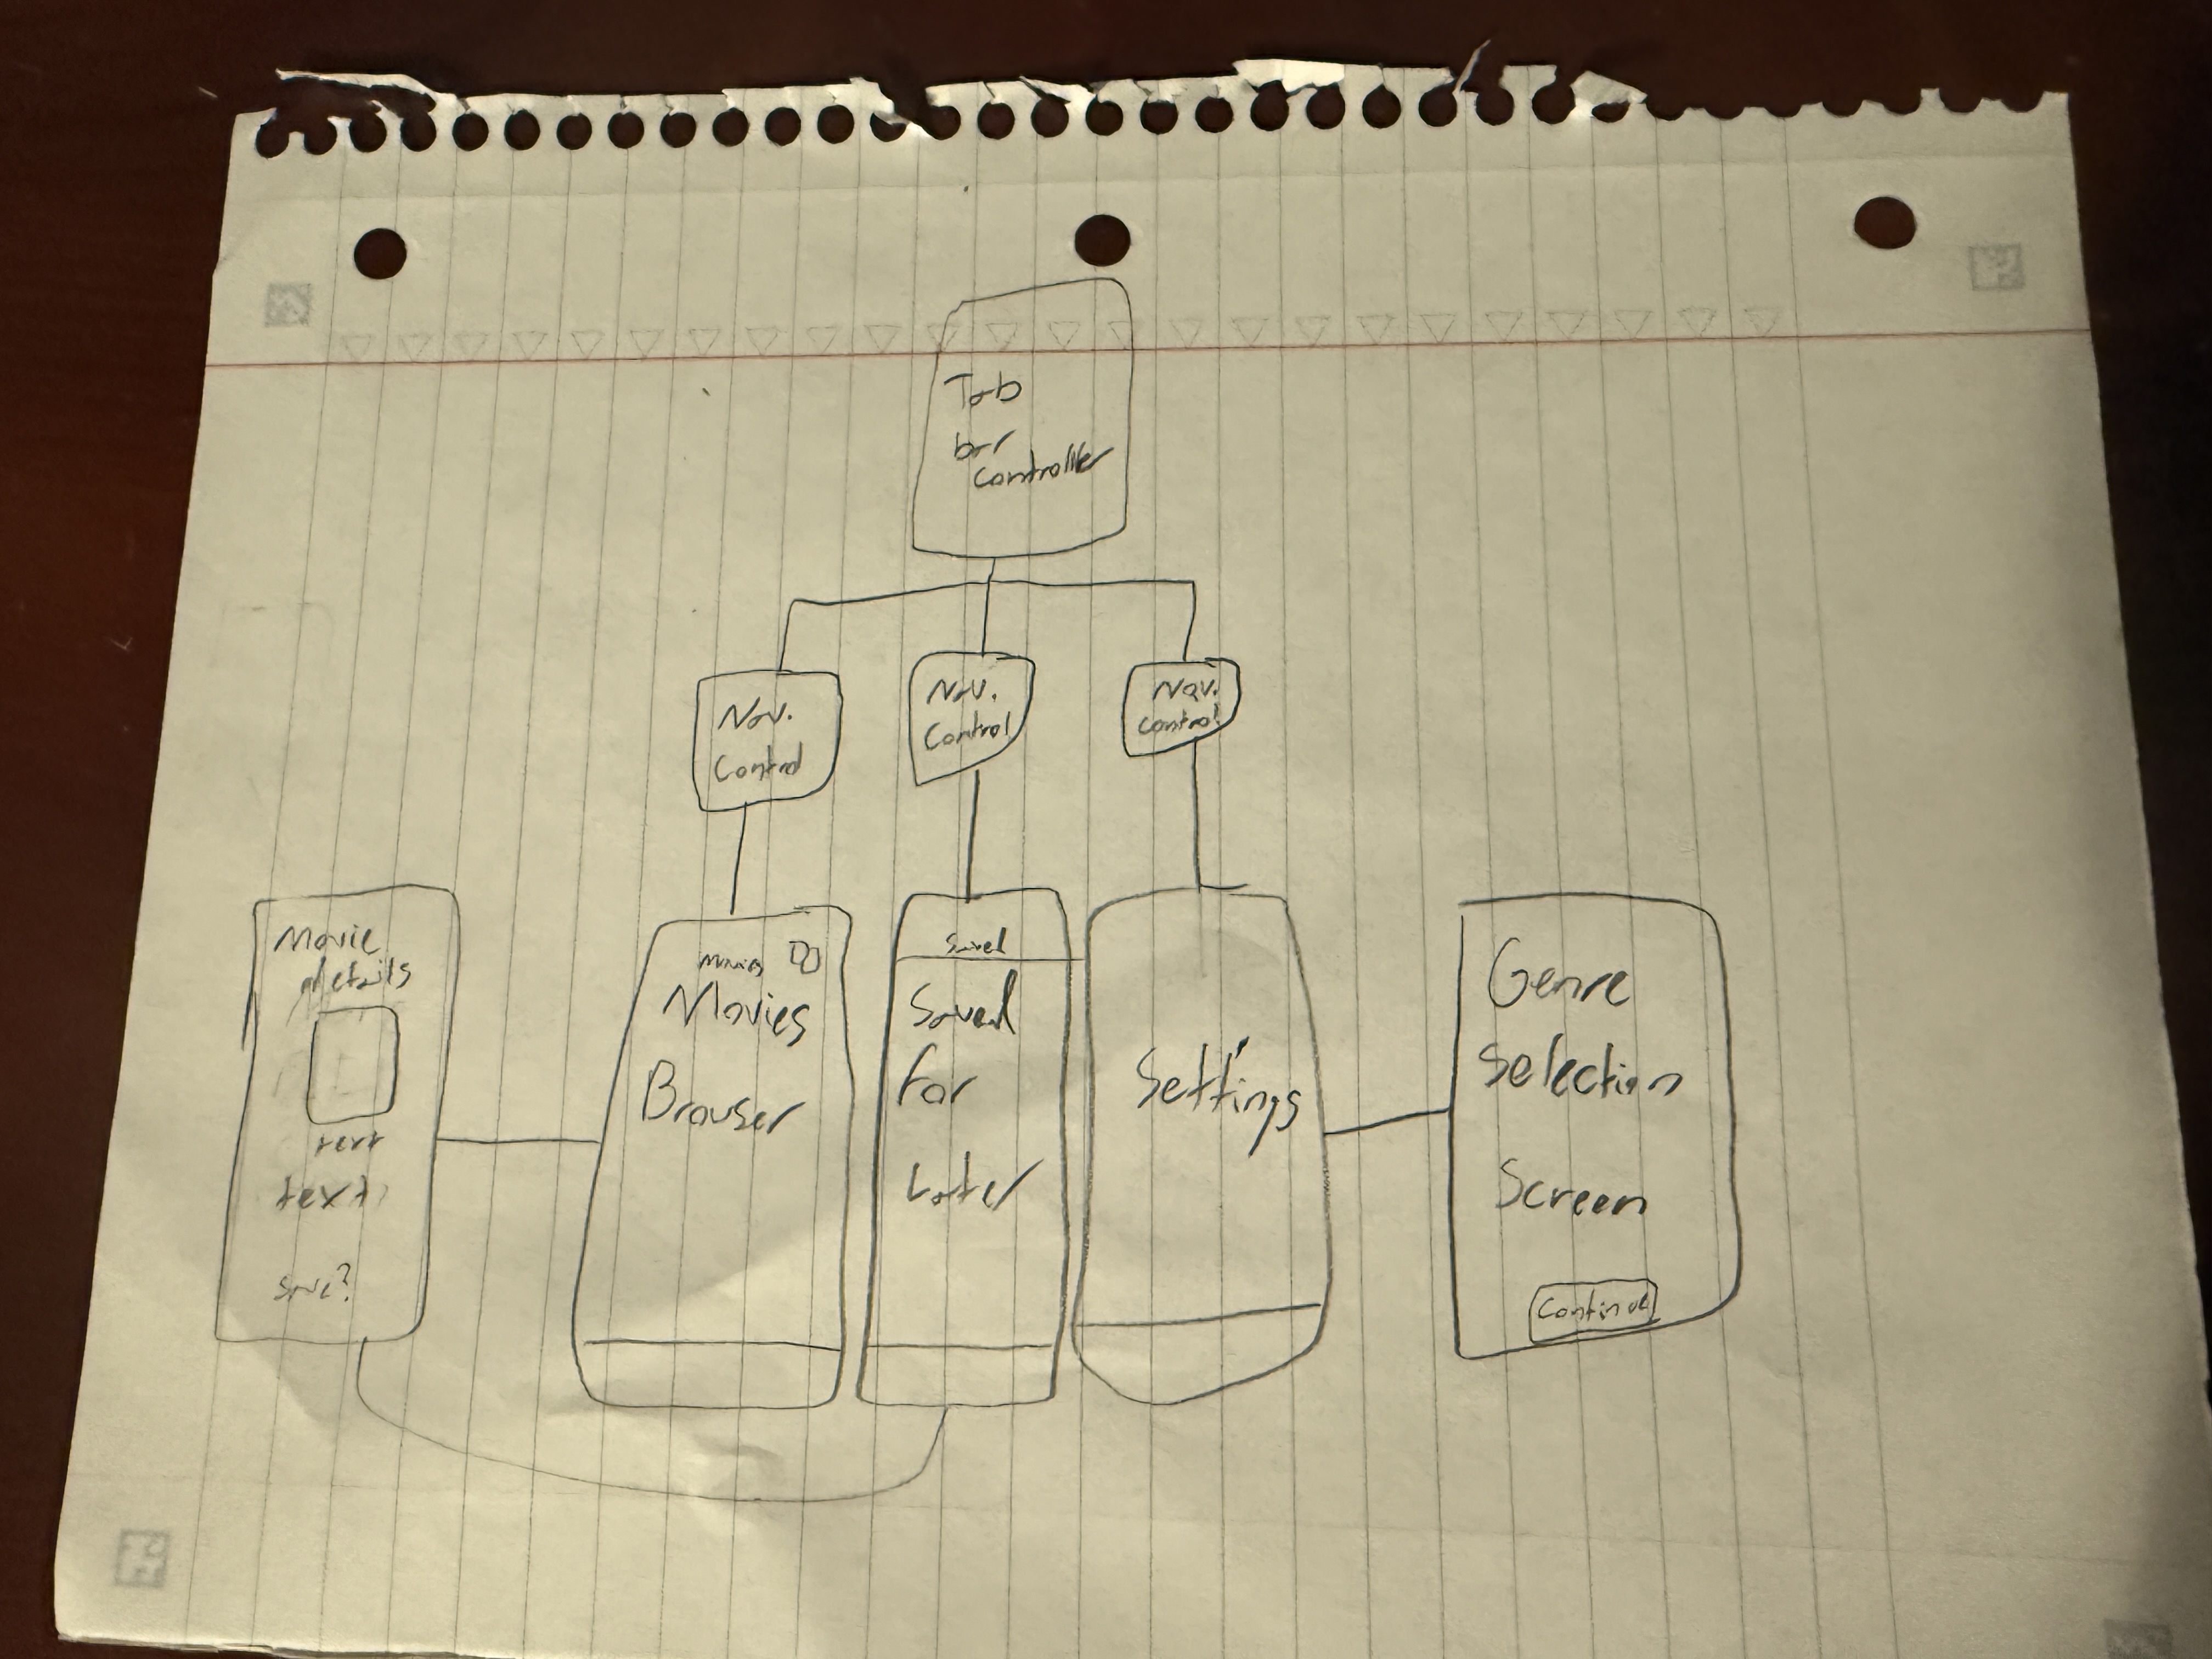 Tab
bar
controller
Nav.
Control
Nav.
Control
Nav.
Control
Movie
Details
text
text
Movies
Movies
Browser
Saved
Saved
for
Later
Settings
Genre
Selection
Screen
Continue